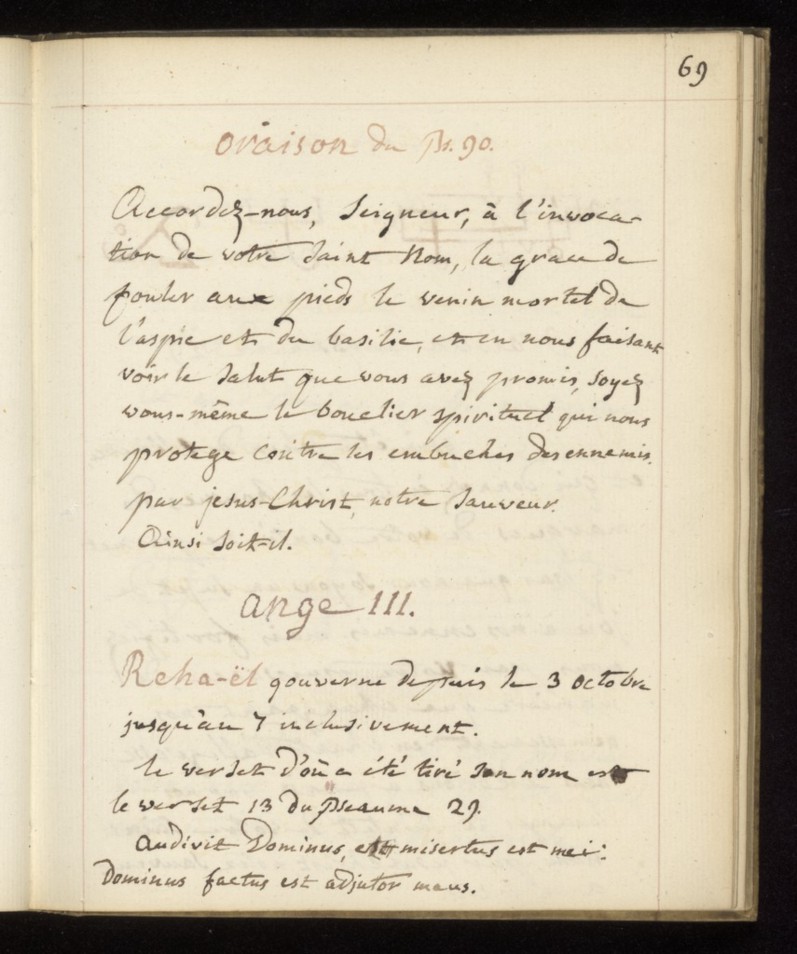 69
oraison du Ps. 90.
Accordez-nous, Seigneur, à l'invoca-
tion de votre Saint Nom, la grace de
fouler aux pieds le venin mortel de
l'aspic et du basilic, et en nous faisant
voir le Salut que vous avez promis, soyez
vous-même le bouclier spirituel qui nous
protege contre les embuches des ennemis.
par jesus-Christ, notre Sauveur.
Ainsi Soit-il.
ange III.
Reha-ël gouverne depuis le 3 octobre
jusqu'au 7 inclusivement.
le verset d'où a été tiré son nom est
le verset 13 du pseaume 29.
audivit Dominus, et misertus est mei:
Dominus factus est adjutor meus.